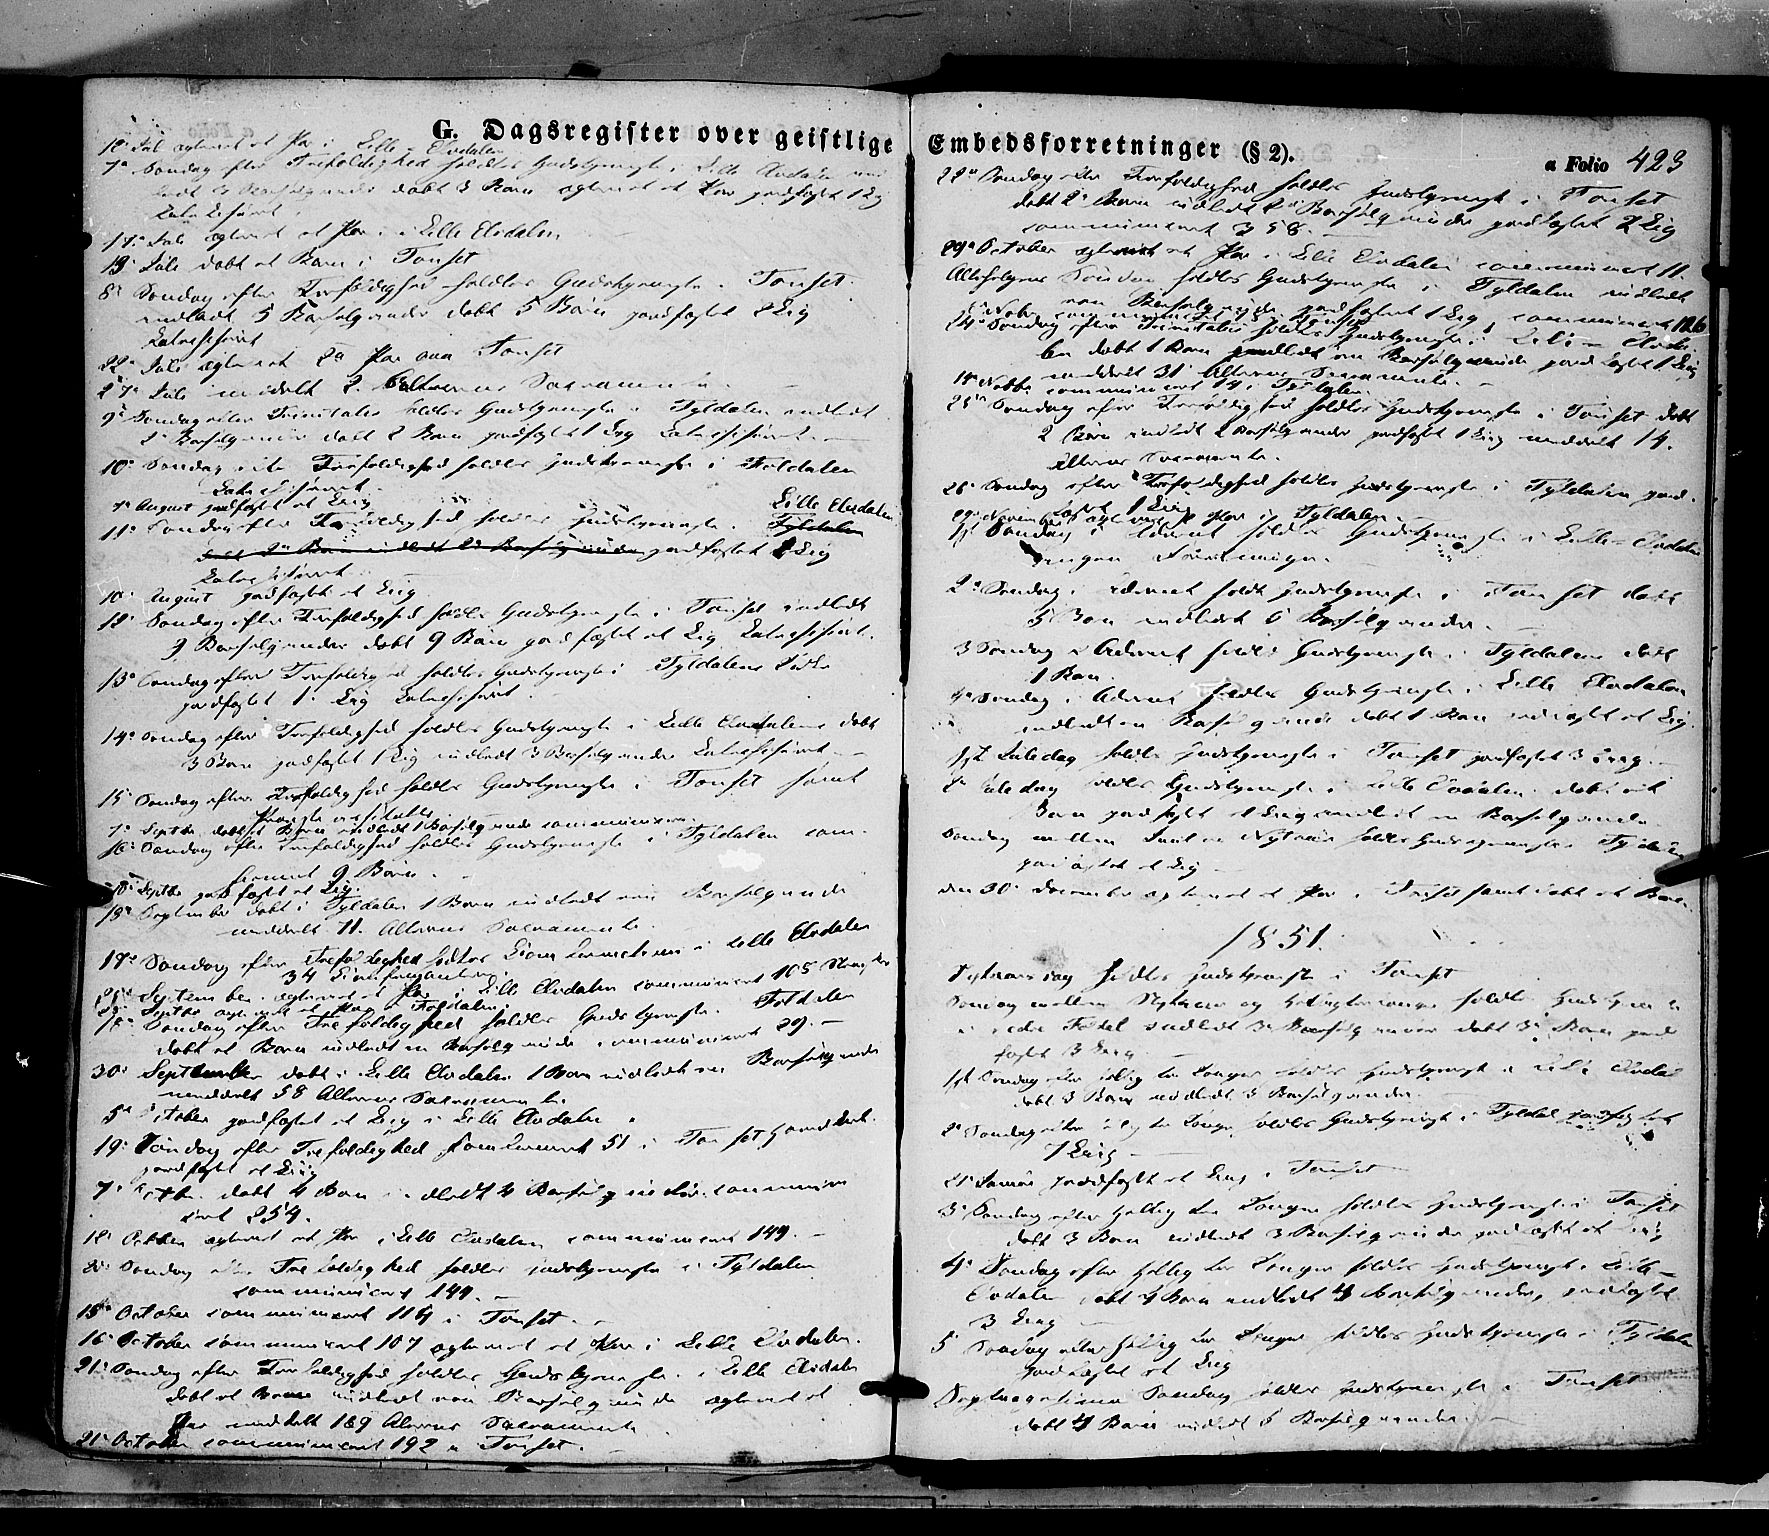 G. Dagsregister over geistlige
12' Juli egteviet et Par i Lille Elvdalen
7de Søndag efter Trefoldighed holdtes Gudstjeneste i Lille Elvdalen
døbt 3 Børn egteviet et Par jordfæstet 1 Lig
Catechiseret.
17de Juli egteviet et Par i Lille Elvdalen
19' Juli døbt et Barn i Tønset
8' Søndag efter Trefoldighed holdtes Gudstjeneste i Tønset
indledt 5 Barselqvinder døbt 5 Børn jordfæstet 2 Lig
Catechiseret
22de Juli egteviet 2de Par Tønset
27de Juli meddelt 2 Alterens Sacramente.
9de Søndag efter Trinitatis holdtes Gudstjeneste i Tyldalen indledt
2de Barselqvinder døbt 2 Børn jordfæstet 1 Lig Catechiseret.
10de Søndag efter Trefoldighed holdtes Gudstjeneste i Foldalen
Catechiseret.
August jordfæstet et Lig
11' Søndag efter Trefoldighed holdtes Gudstjeneste i Tyldalen Lille Elvdalen
døbt 2de Børn indledt Barselqvinder jordfæstet 1 Lig
Catechiseret
10' August jordfæstet et Lig
12' Søndag efter Trefoldighed holdtes Gudstjeneste i Tønset indledt
9 Barselqvinder døbt 9 Børn jordfæstet et Lig Catechiseret.
13' Søndag efter Trefoldighed holdtes Gudstjeneste i Tyldalens Kirke
jordfæstet 1 Lig Catechiseret.
14de Søndag efter Trefoldighed holdtes Gudstjeneste i Lille Elvdalen døbt
3 Børn jordfæstet 1 Lig indledt 3 Barselqvinder Catechiseret
15' Søndag efter Trefoldighed holdtes Gudstjeneste i Tønset samt
7' Septbr døbt et Barn indledt 1 Barselqvinde
16' Søndag efter Trefoldighed holdtes Gudstjeneste i Tyldalen con-
firmeret 9 Børn.
Septbr jordfæstet et Lig.
18' September døbt i Tyldalen 1 Barn indledt een Barselqvinde
meddelt 71 Alterens Sacramente.
17de Søndag efter Trefoldighed holdtes Confirmation i Lille Elvdalen
34 Confirmanter.
September egteviet et Par i Lille Elvdalen communiceret 105
Septbr egteviet et Par Foldalen
18' Søndag efter Trefoldighed holdtes Gudstjeneste i Foldalen
døbt et Barn indledt en Barselqvinde communiceret 29.
30' September døbt i Lille Elvdalen 1 Barn indledt en Barselqvinde
meddelt 58 Alterens Sacramente.
5' October jordfæstet et Lig i Lille Elvdalen
19' Søndag efter Trefoldighed confirmeret 51 i Tønset
jordfæstet et Lig
7' Octbr. døbt 4 Børn indledt 4 Barselqvinder communi-
ceret 254.
Octber egteviet et Par i Lille Elvdalen communiceret 149.
20' Søndag efter Trefoldighed holdtes Gudstjeneste i Tyldalen
communiceret 144.
15' October communiceret 114 i Tønset.
16' October communiceret 107 egteviet et Par i Lille Elvdalen.
21' Søndag efter Trefoldighed holdtes Gudstjeneste i Lille Elvdalen
døbt et Barn indledt een Barselqvinde egteviet et
Par meddelt 189 Alterens Sacramente.
21' October communiceret 192 i Tønset.
Embedsforretninger (§ 2).
a Folio 423
22' Søndag efter Trefoldighed holdtes Gudstjeneste i Tønset
døbt 2' Børn indledt 2 Barselqvinder jordfæstet 2 Lig
communiceret 358.
29' October egteviet et Par i Lille Elvdalen communiceret 11.
Allehelgens Søndag holdtes Gudstjeneste i Tyldalen indledt
een Barselqvinde jordfæstet 1 Lig communiceret 126
24' Søndag efter Trinitatis holdtes Gudstjeneste i Lille Elvda-
len døbt 1 Barn indledt en Barselqvinde jordfæstet 1 Lig
meddelt 31 Alterens Sacramente.
Novbr communiceret 14 i Tyldalen
25' Søndag efter Trefoldighed holdtes Gudstjeneste i Tønset døbt
2 Børn indledt 2 Barselqvinder jordfæstet 1 Lig meddelt 14.
Alterens Sacramente.
26' Søndag efter Trefoldighed holdtes Gudstjeneste i Tyldalen jord-
fæstet 1 Lig
November egteviet Par i Tyldalen
1ste Søndag i Advent holdtes Gudstjeneste i Lille Elvdalen
ingen Forretninger.
2' Søndag i Advent holdt Gudstjeneste i Tønset døbt
5 Børn indledt 6 Barselqvinder.
3 Søndag i Advent holdtes Gudstjeneste i Tyldalen døbt
1 Barn.
4' Søndag i Advent holdtes Gudstjeneste i Lille Elvdalen
indledt en Barselqvinde døbt 1 Barn jordfæstet et Lig.
1ste Juledag holdtes Gudstjeneste i Tønset jordfæstet 3 Lig
2' Juledag holdtes Gudstjeneste i Lille Elvdalen døbt eet
Barn jordfæstet et Lig indledt en Barselqvinde
Søndag mellem Juul og Nytaar holdtes Gudstjeneste i Tyldalen
jordfæstet et Lig
den 30' December egteviet et Par i Tønset samt døbt et Barn
1851.
Nytaarsdag holdtes Gudstjeneste i Tønset
Søndag mellem Nytaar og Helligtrekonger holdtes Gudstjeneste
i indledt 3 Barselqvinder døbt 3 Børn jord-
fæstet 3 Lig
1ste Søndag efter Hellig tre Konger holdtes Gudstjeneste i Lille Elvdal
døbt 3 Børn indledt 3 Barselqvinder.
2' Søndag efter Hellig tre Konger holdtes Gudstjeneste i Tyldal jordfæstet
1 Lig
21' Januar jordfæstet et Lig i Tønset
3' Søndag efter Hellig tre Konger holdtes Gudstjeneste i Tønset
døbt 3 Børn indledt 3 Barselqvinder jordfæstet et Lig
4' Søndag efter Hellig tre Konger holdtes Gudstjeneste i Lille
Elvdalen døbt 4 Børn indledt 4 Barselqvinder, jordfæstet
3 Lig
5 Søndag efter Hellig tre Konger holdtes Gudstjeneste i Tyldalen
jordfæstet et Lig
Septuagesima Søndag holdtes Gudstjeneste i Tønset
døbt 4 Børn indledt 5 Barselqvinder.